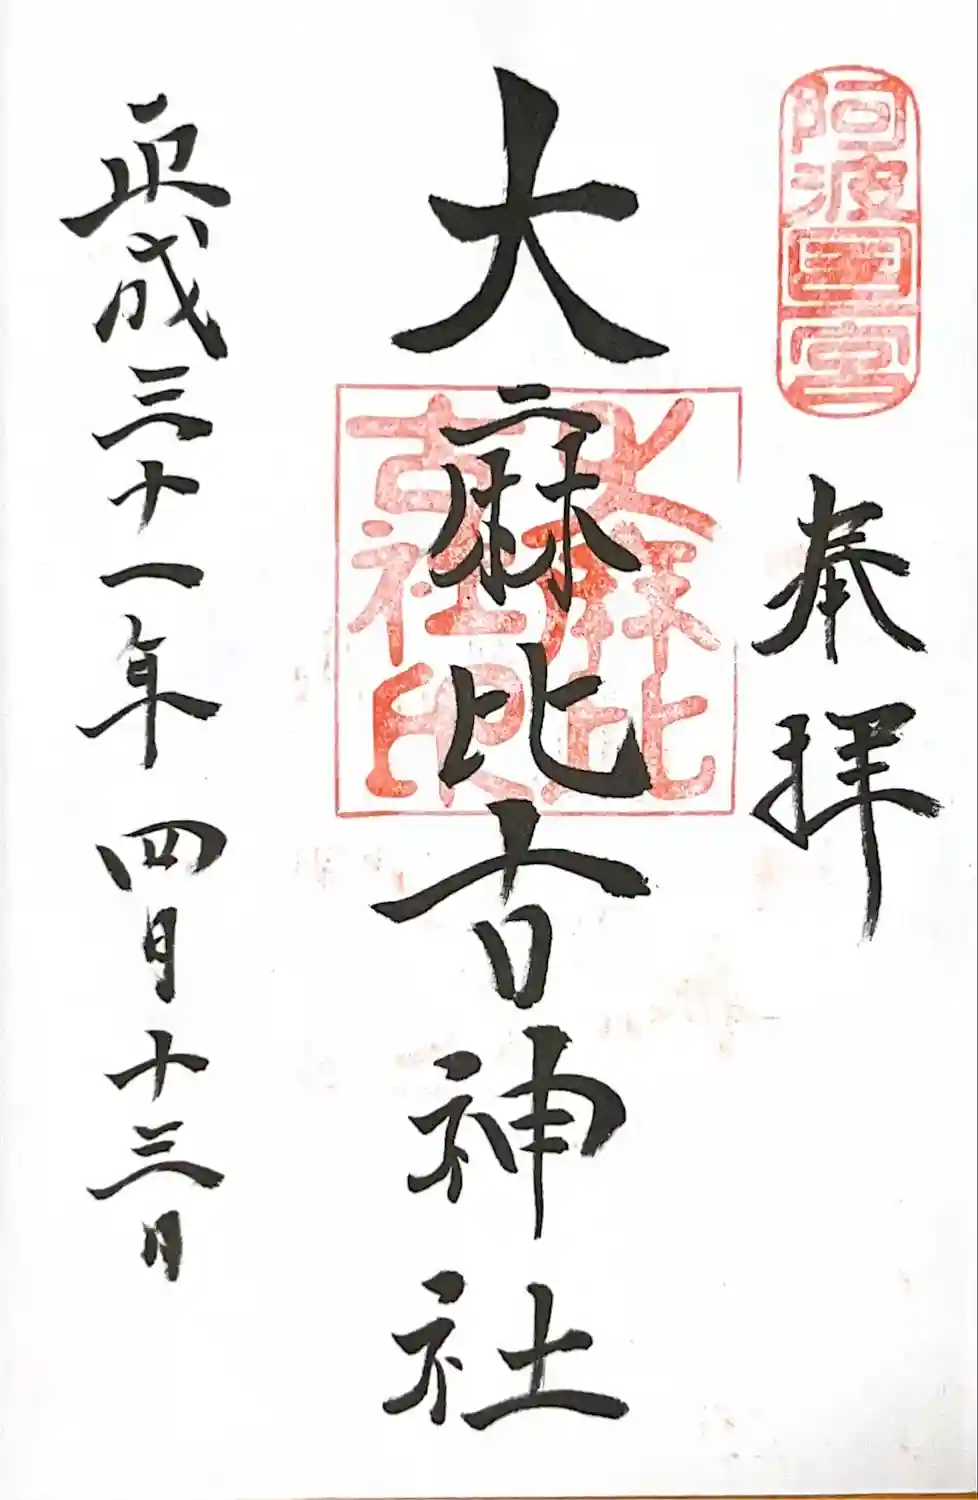 阿波国一宮
奉拝
大麻比古神社
大麻比古社印
平成三十一年四月十三日